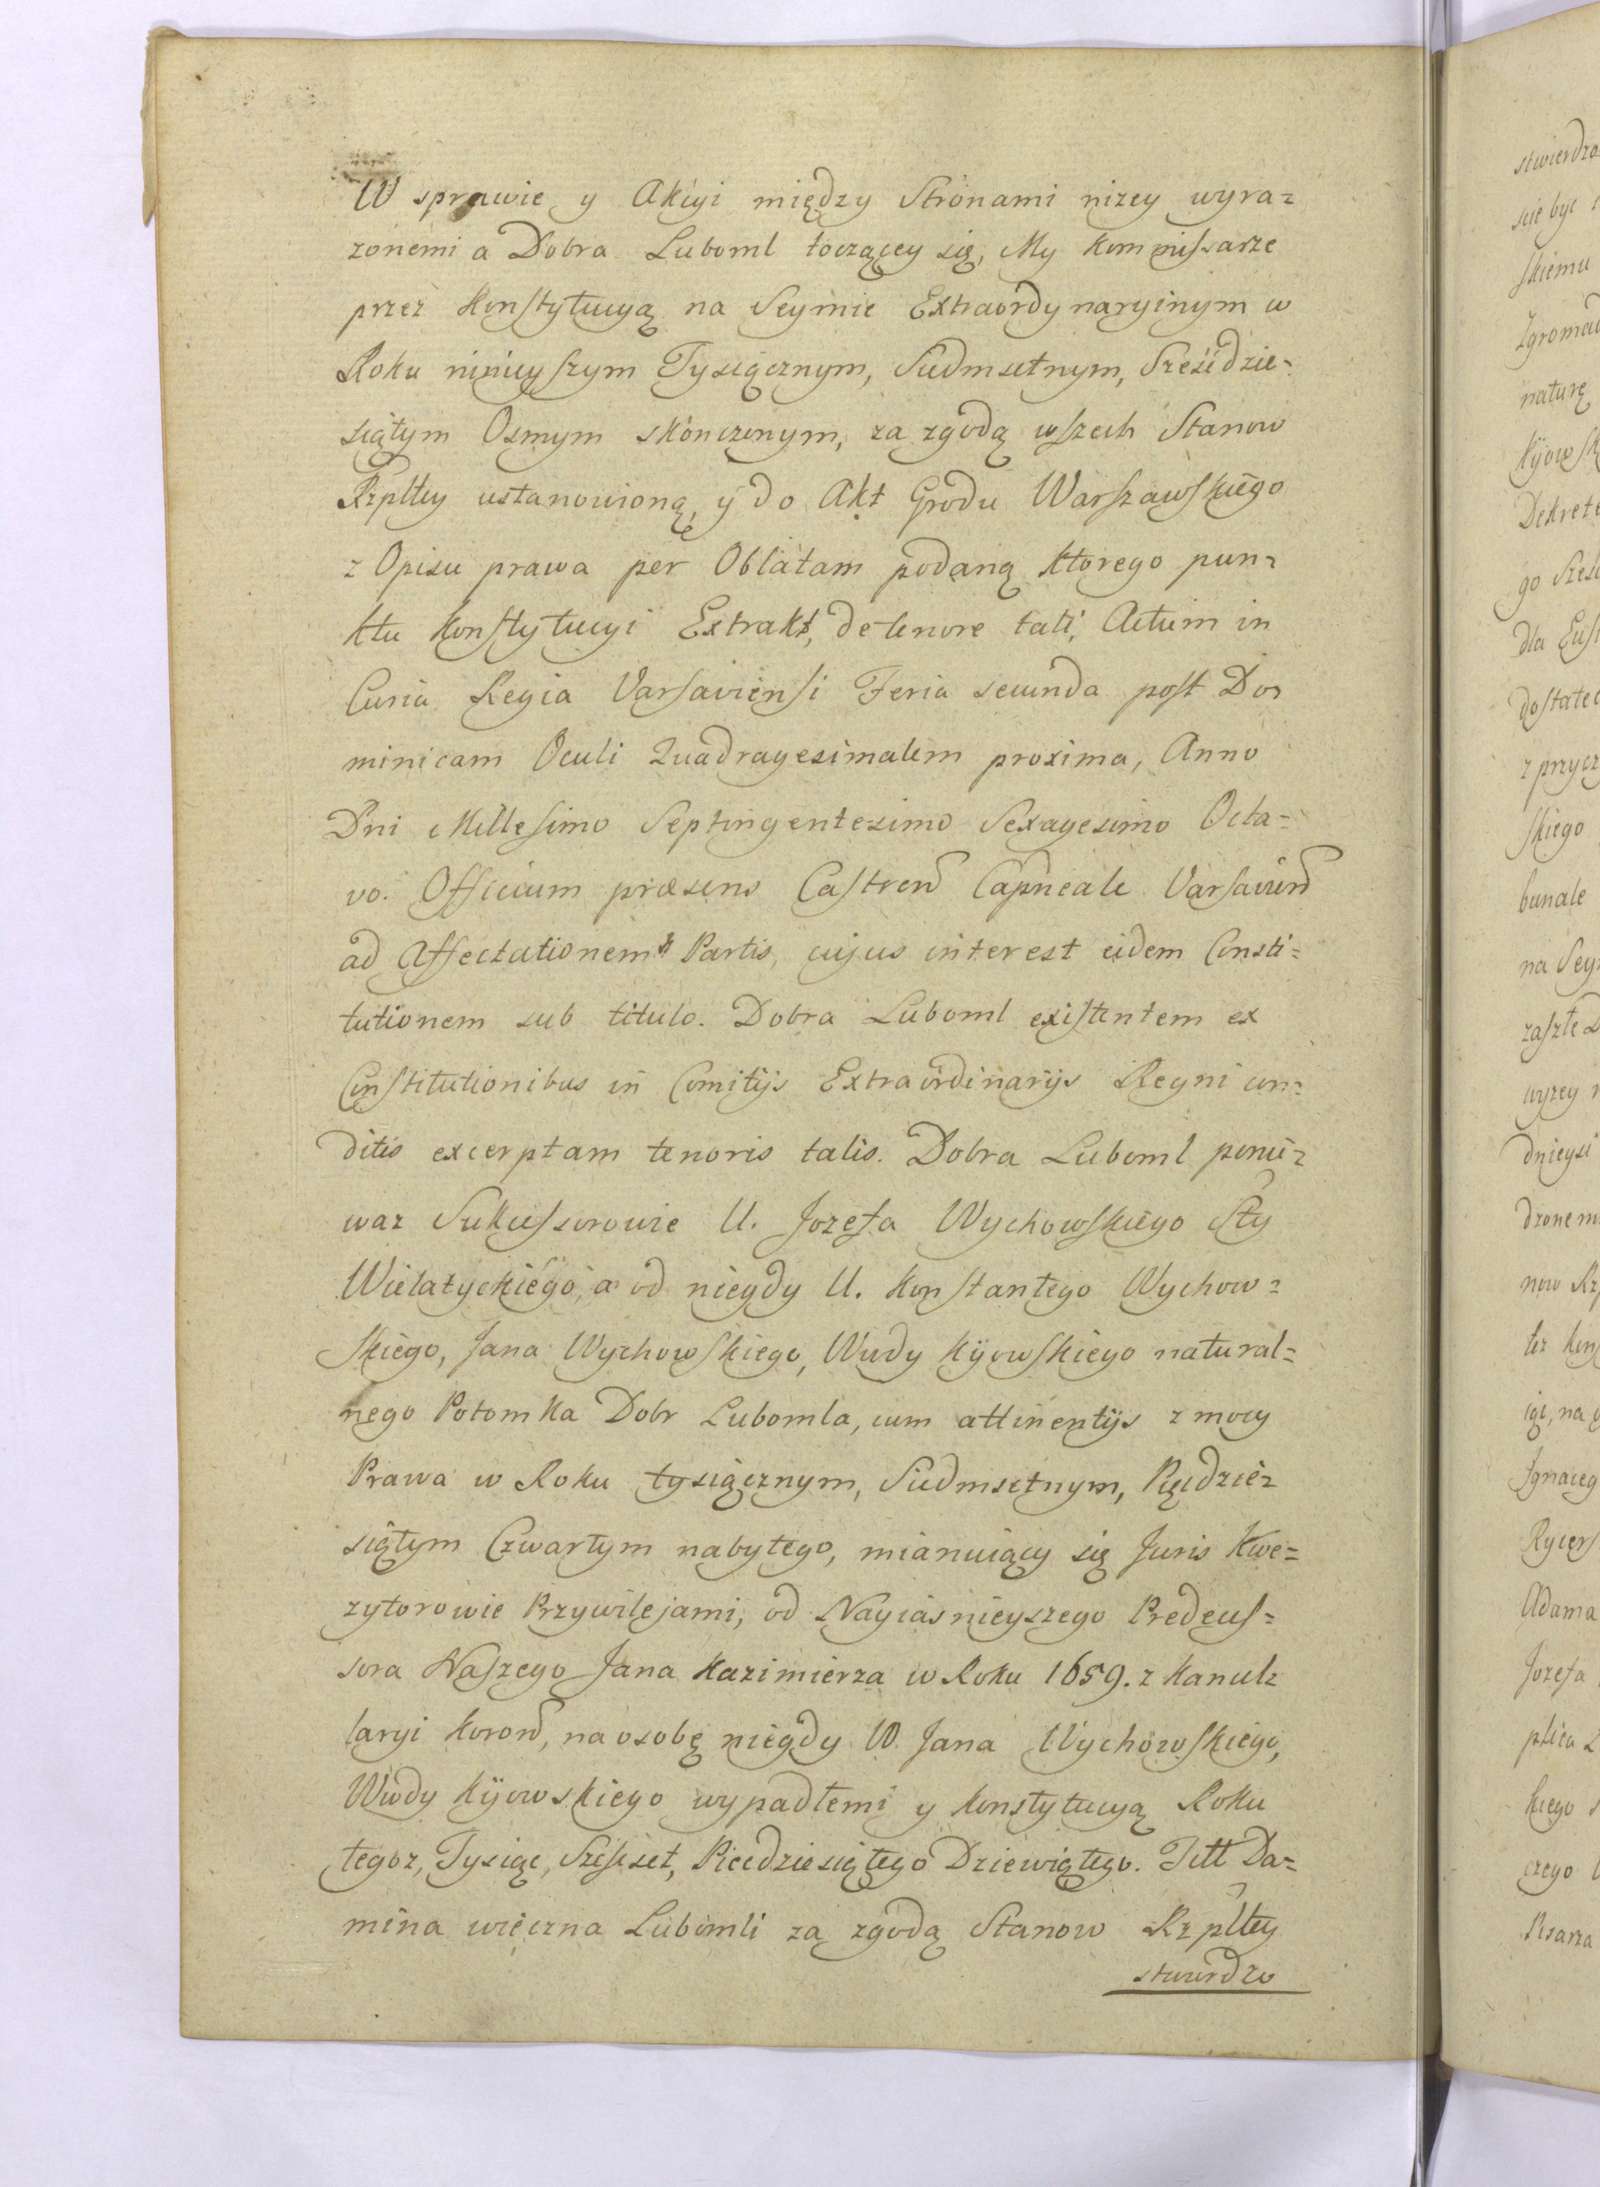 W sprawie y Akcyi między Stronami nizey wyra=
zonemi a Dobra Luboml toczącey się, My Kommissarze
przez Konstytucyą na Seymie Extraordynaryinym w
Roku ninieyszym Tysiącznym, Siedmsetnym, Sześćdzie=
siątym Osmym skończonym, za zgodą wszech Stanow
Rzpltey ustanowioną, y do Akt Grodu Warszawskiego
z Opisu prawa per Oblatam podaną ktorego pun=
ktu Konstytucyi Extrakt, de tenore tali, Actum in
Curia Regia Varsaviensi Feria secunda post Do=
minicam Oculi Quadragesimalem proxima, Anno
Dni Millesimo Septingentesimo Sexagesimo Octa=
vo. Officium præsens Castren Capneale Varsavien
ad Affectationem Partis, cujus interest eidem Consti=
tutionem sub titulo. Dobra Luboml existentem ex
Constitutionibus in Comitijs Extraordinarijs Regni con=
ditis excerptam tenoris talis. Dobra Luboml ponie=
waz Sukcessorowie U. Jozefa Wychowskiego Sty
Wielatyckiego, a od niegdy U. Konstantego Wychow=
skiego, Jana Wychowskiego, Wwdy Kijowskiego natural=
nego Potomka Dobr Lubomla, cum attinentijs z mocy
Prawa w Roku tysiącznym, Siedmsetnym, Pięćdzie=
siątym Czwartym nabytego, mianuiący się Juris Kwe=
zytorowie Przywilejami, od Nayiasnieyszego Predeces=
sora Naszego Jana Kazimierza w Roku 1659. z Kancel=
laryi Koron, na osobę niegdy W. Jana Wychowskiego,
Wwdy Kijowskiego wypadłemi y Konstytucyą Roku
tegoz, Tysiąc, Szescset, Piecdziesiątego Dziewiątego. Titt Da=
nina wieczna Lubomli za zgodą Stanow Rzpltey
stwierdzo
stwierdzo
scie byc
skiemu
Zgromad
naturę
Kijowsk
Dekrete
go Szesc
dla
dostatec
z przycz
skiego
bunale
na Seym
zaszłe D
wyzey
dnieysi
dzonem
now Rz
tez Kon
na
Ignaceg
Rycers
Adama
Jozefa
kiego
czego
Pisarza